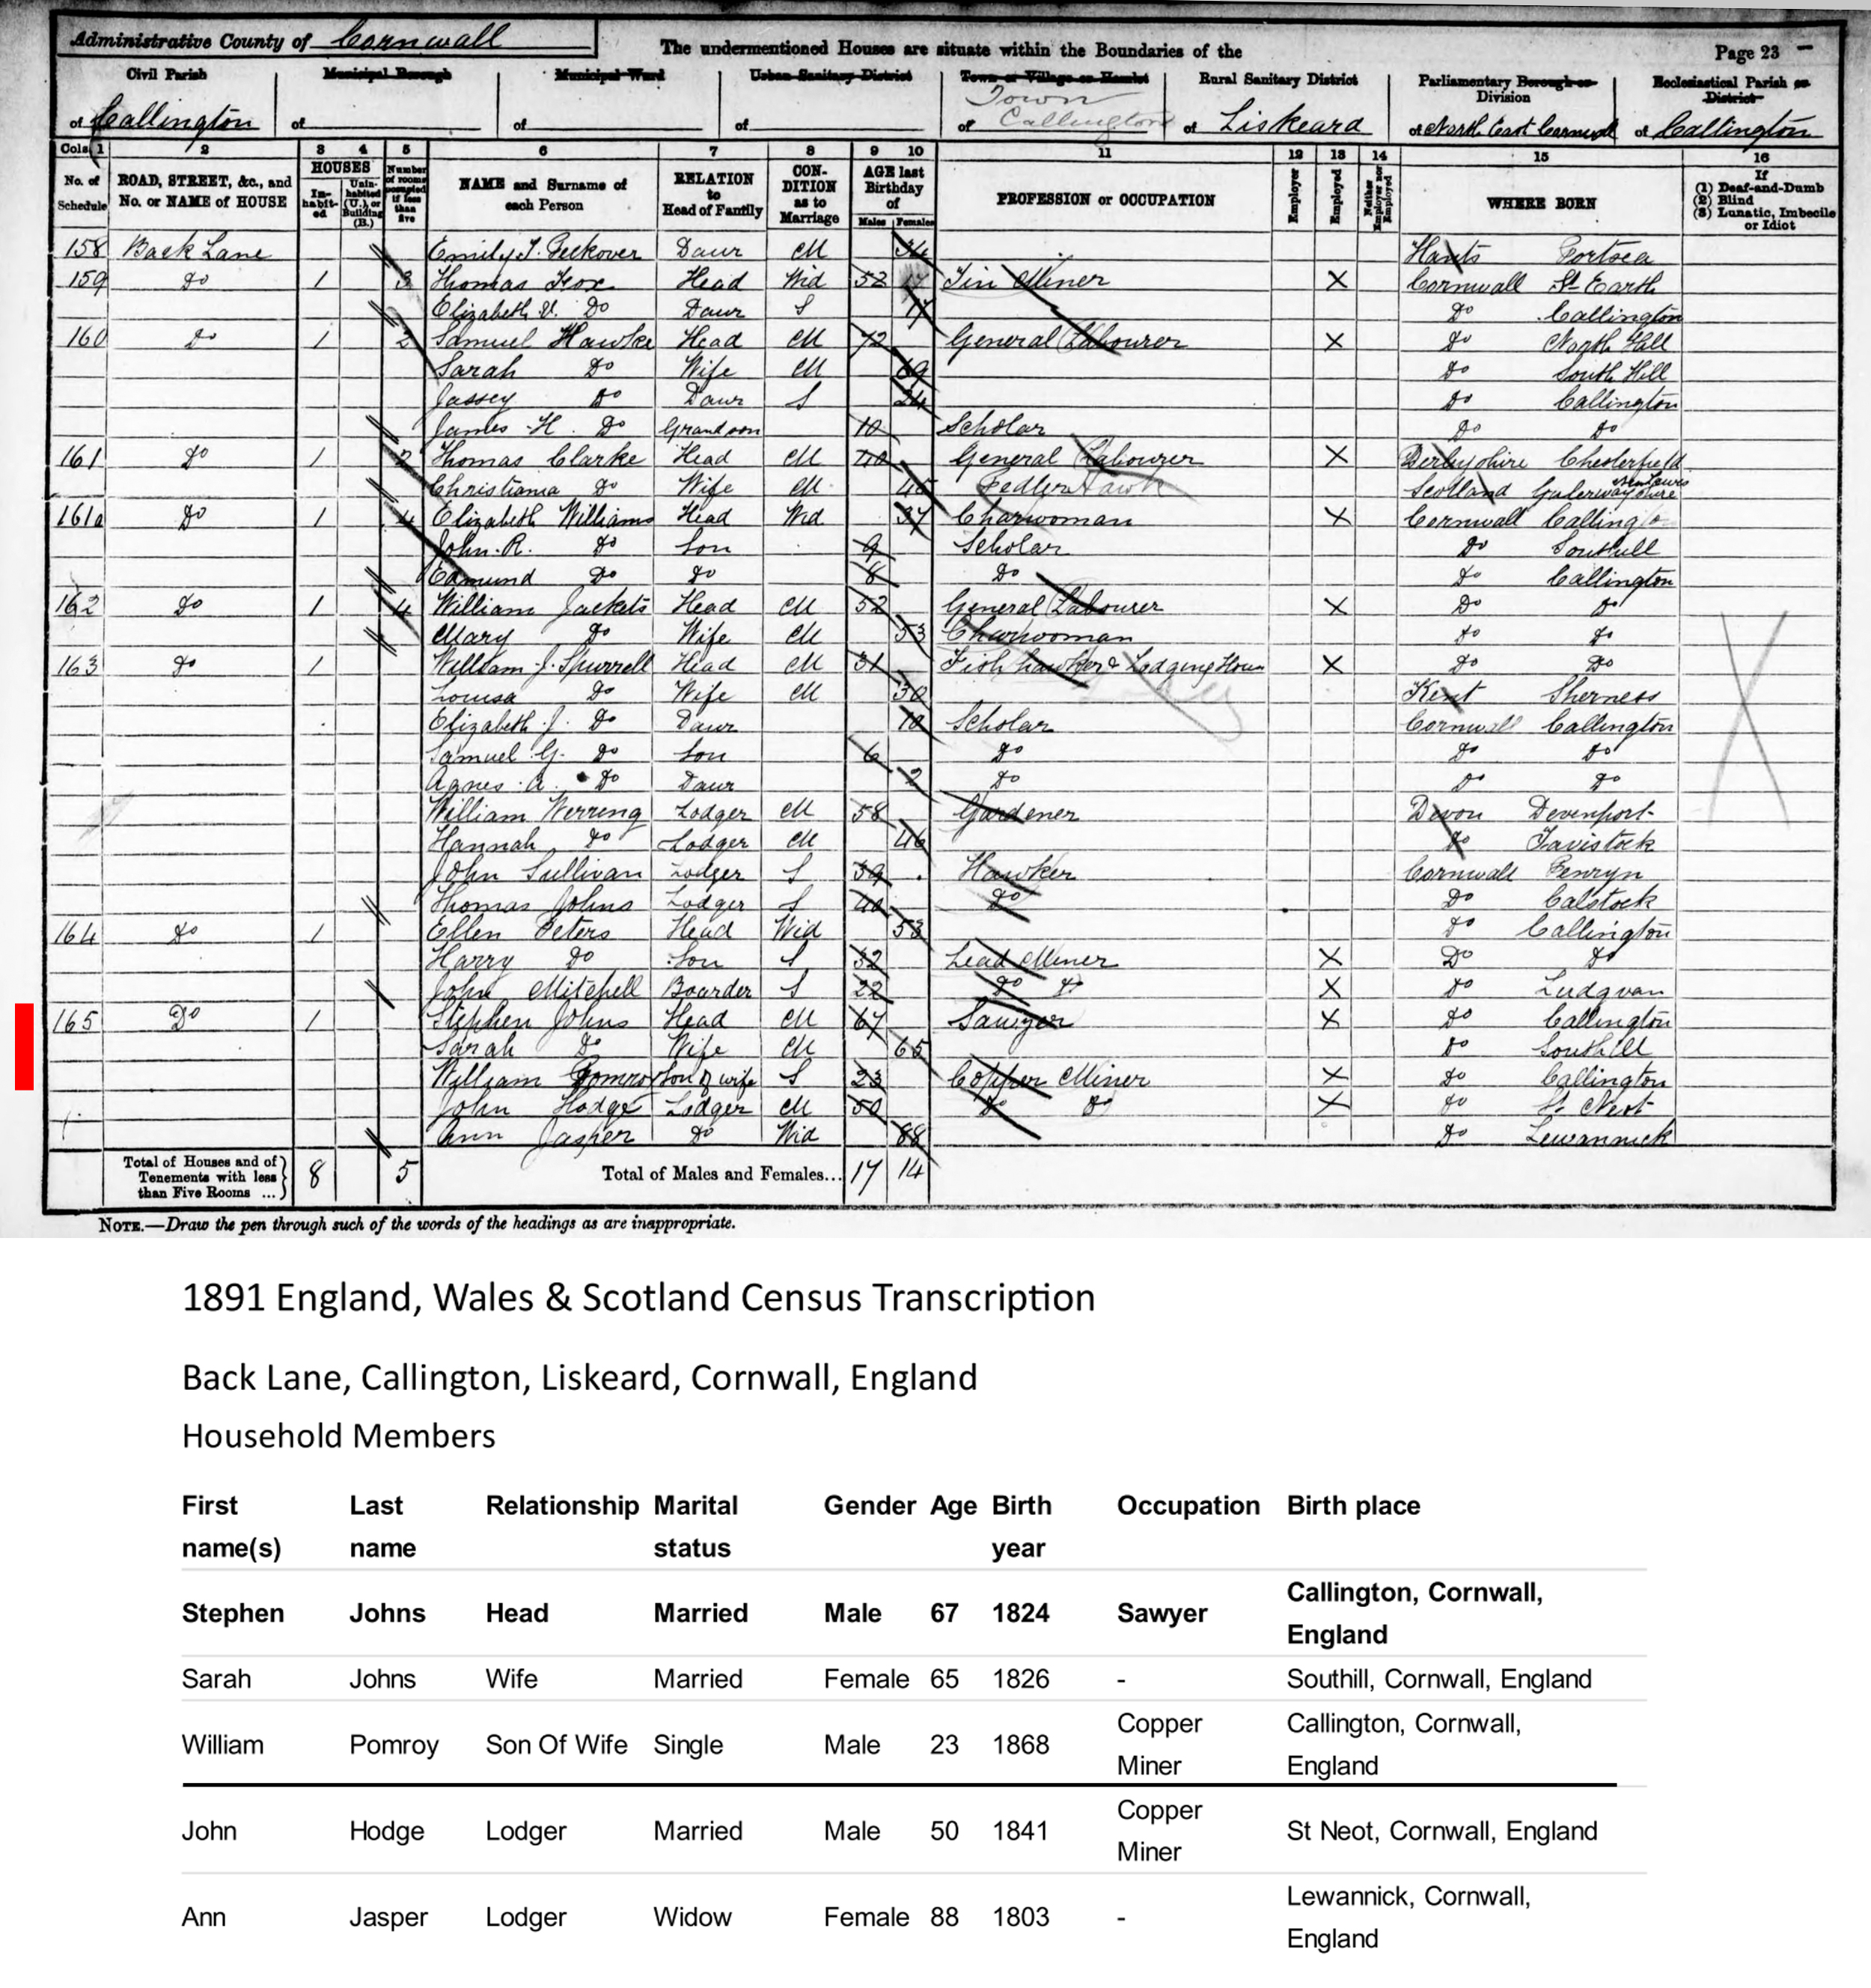 Administrative County of Cornwall
The undermentioned Houses are situate within the Boundaries of the
Page 23
Civil Parish of Callington
Municipal Borough of
Municipal Ward of
Urban Sanitary District of
Town or Village or Hamlet of Town Callington
Rural Sanitary District of Liskeard
Parliamentary Borough or Division of North East Cornwall
Ecclesiastical Parish or District of Callington
Cols. 1 2 3 4 5 6 7 8 9 10 11 12 13 14 15 16
No. of Schedule
ROAD, STREET, &c., and No. or NAME of HOUSE
HOUSES
In-habit-ed
Unin-habited (U.), or Building (B.)
Number of rooms occupied if less than five
NAME and Surname of each Person
RELATION to Head of Family
CON-DITION as to Marriage
AGE last Birthday of
Males Females
PROFESSION or OCCUPATION
Employer
Employed
Neither Employer nor Employed
WHERE BORN
If (1) Deaf-and-Dumb (2) Blind (3) Lunatic, Imbecile or Idiot
158 Back Lane Emily J. Peckover Daur M 34 Hants Portsea
159 Do 1 3 Thomas Fox Head Wid 52 Tin Miner X Cornwall St Earth
Elizabeth Do Daur S 17 Do Callington
160 Do 1 2 Samuel Hawke Head M 72 General Labourer X Do North Hill
Sarah Do Wife M 69 Do South Hill
Jassey Do Daur S 24 Do Callington
James H. Do Grandson 10 Scholar Do Do
161 Do 1 2 Thomas Clarke Head M 40 General Labourer X Derbyshire Chesterfield
Christiania Do Wife M 45 Pedler Hawk Scotland
161a Do 1 4 Elizabeth Williams Head Wid 37 Charwoman X Cornwall Callington
John. R. Do Son 9 Scholar Do Southill
Edmund Do Do 8 Do Do Callington
162 Do 1 4 William Jackets Head M 52 General Labourer X Do Do
Mary Do Wife M 53 Charwoman Do Do
163 Do 1 William J. Spurrell Head M 31 Fish hawker & Lodging House X Do Do
Louisa Do Wife M 30 Kent Sherness
Elizabeth J. Do Daur 10 Scholar Cornwall Callington
Samuel G. Do Son 6 Do Do Do
Agnes A. Do Daur 2 Do Do Do
William Werring Lodger M 58 Gardener Devon Devenport
Hannah Do Lodger M 46 Do Tavistock
John Sullivan Lodger S 39 Hawker Cornwall Penryn
Thomas Johns Lodger S 40 Do Do Calstock
164 Do 1 Ellen Peters Head Wid 53 Do Callington
Harry Do Son S 32 Lead Miner X Do Do
John Mitchell Boarder S 22 Do Do X Do Ludgvan
165 Do 1 Stephen Johns Head M 67 Sawyer X Do Callington
Sarah Do Wife M 65 Do Southill
William Pomroy Son of wife S 23 Copper Miner X Do Callington
John Hodge Lodger M 50 Do Do X Do St Neot
Ann Jasper Do Wid 88 Do Lewannick
Total of Houses and of Tenements with less than Five Rooms ... 8 5 Total of Males and Females... 17 14
NOTE.—Draw the pen through such of the words of the headings as are inappropriate.
1891 England, Wales & Scotland Census Transcription
Back Lane, Callington, Liskeard, Cornwall, England
Household Members
First name(s) Last name Relationship Marital status Gender Age Birth year Occupation Birth place
Stephen Johns Head Married Male 67 1824 Sawyer Callington, Cornwall, England
Sarah Johns Wife Married Female 65 1826 - Southill, Cornwall, England
William Pomroy Son Of Wife Single Male 23 1868 Copper Miner Callington, Cornwall, England
John Hodge Lodger Married Male 50 1841 Copper Miner St Neot, Cornwall, England
Ann Jasper Lodger Widow Female 88 1803 - Lewannick, Cornwall, England